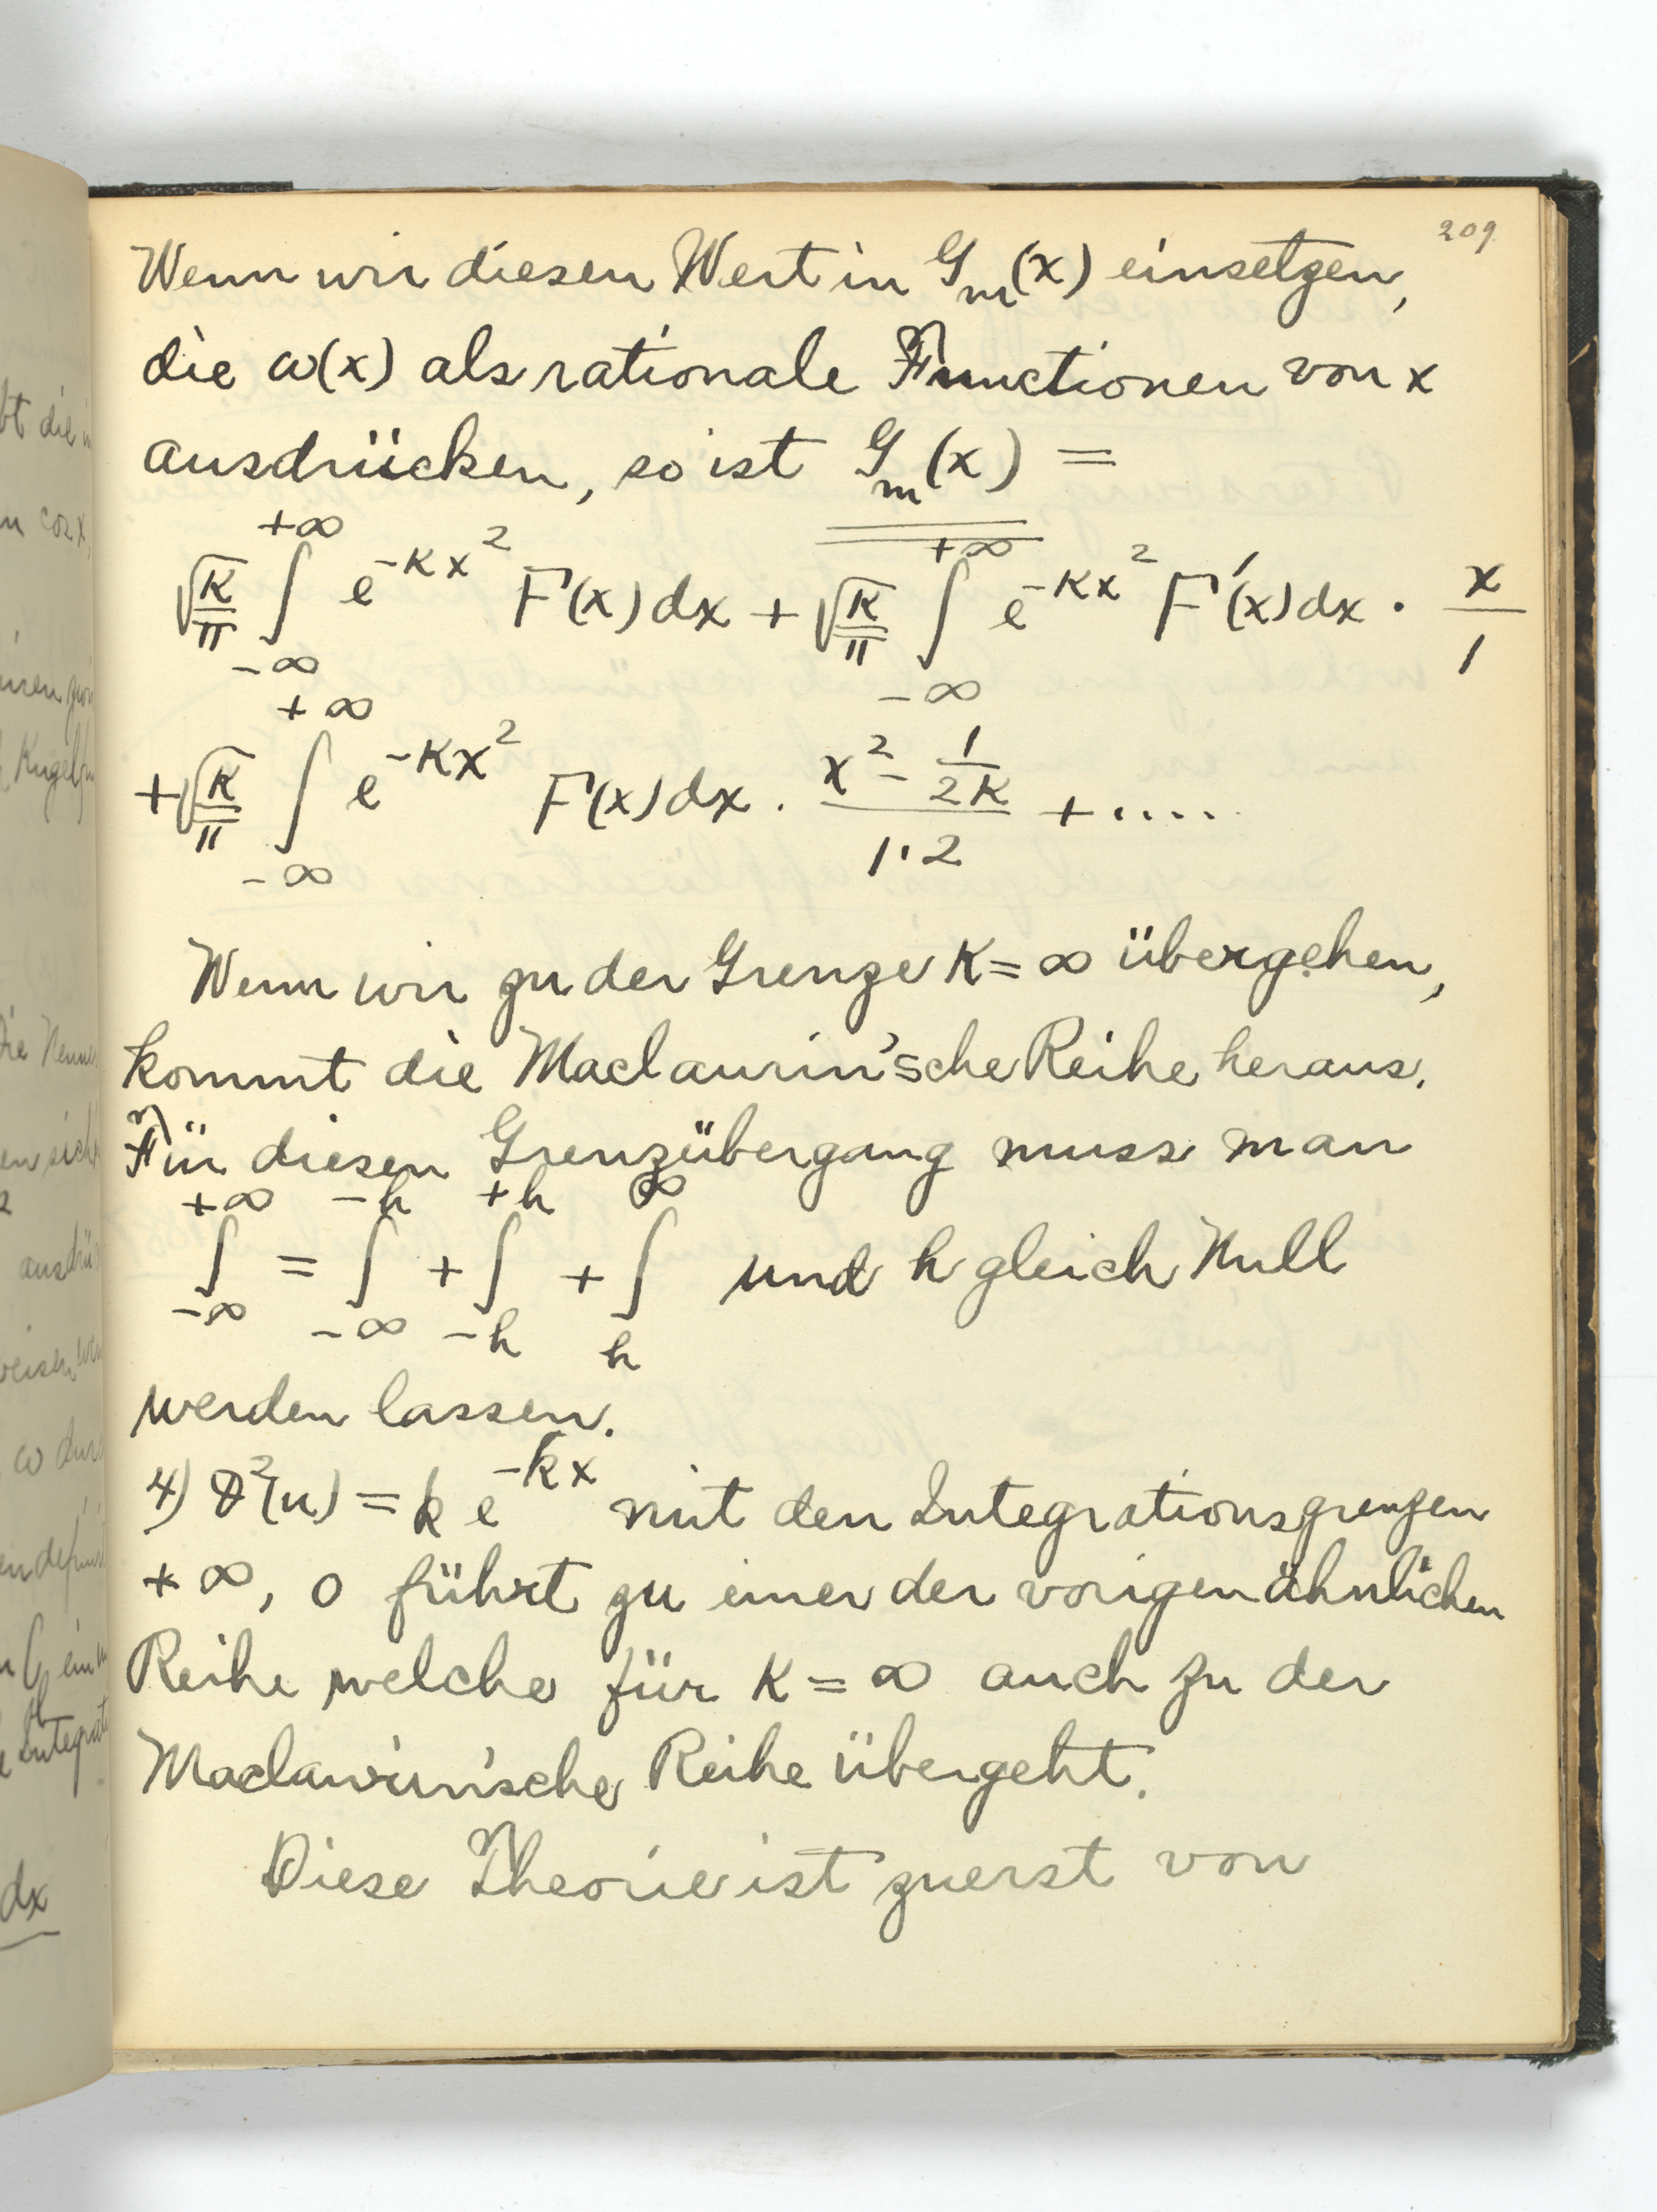 209
Wenn wir diesen Wert in G_m(x) einsetzen,
die ω(x) als rationale Functionen von x
ausdrücken, so ist G_m(x) =
√(K/π) ∫_{-∞}^{+∞} e^{-Kx²} F(x)dx + √(K/π) ∫_{-∞}^{+∞} e^{-Kx²} F'(x)dx · x/1
+ √(K/π) ∫_{-∞}^{+∞} e^{-Kx²} F(x)dx · (x² - 1/2K)/(1·2) + ....
Wenn wir zu der Grenze K = ∞ übergehen,
kommt die Maclaurin'sche Reihe heraus.
Für diesen Grenzübergang muss man
∫_{-∞}^{+∞} = ∫_{-∞}^{-h} + ∫_{-h}^{+h} + ∫_{h}^{∞} und h gleich Null
werden lassen.
4) ϑ²(u) = k e^{-kx} mit den Integrationsgrenzen
+∞, 0 führt zu einer der vorigen ähnlichen
Reihe welche für K = ∞ auch zu der
Maclaurin'sche Reihe übergeht.
Diese Theorie ist zuerst von